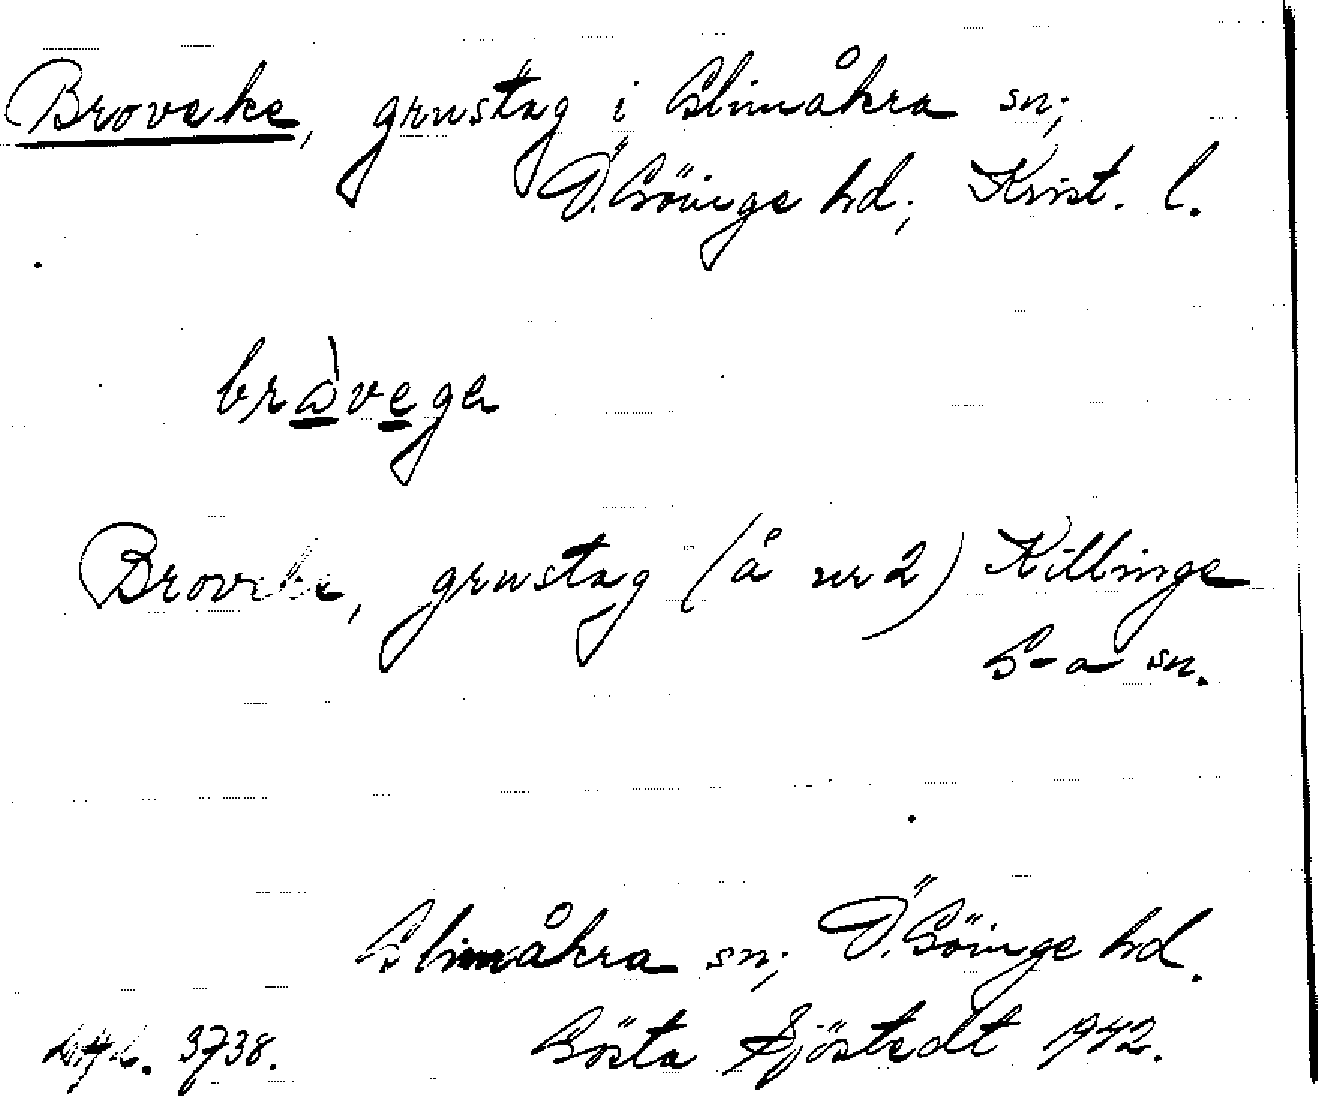 Broveke, grustag i Glimåkra sn;
Ö. Göinge hd; Krist. l.
bràvega
Broveke, grustag (å nr 2) Killinge
G-a sn.
Glimåkra sn; Ö. Göinge hd.
3738. Gösta Sjöstedt 1942.